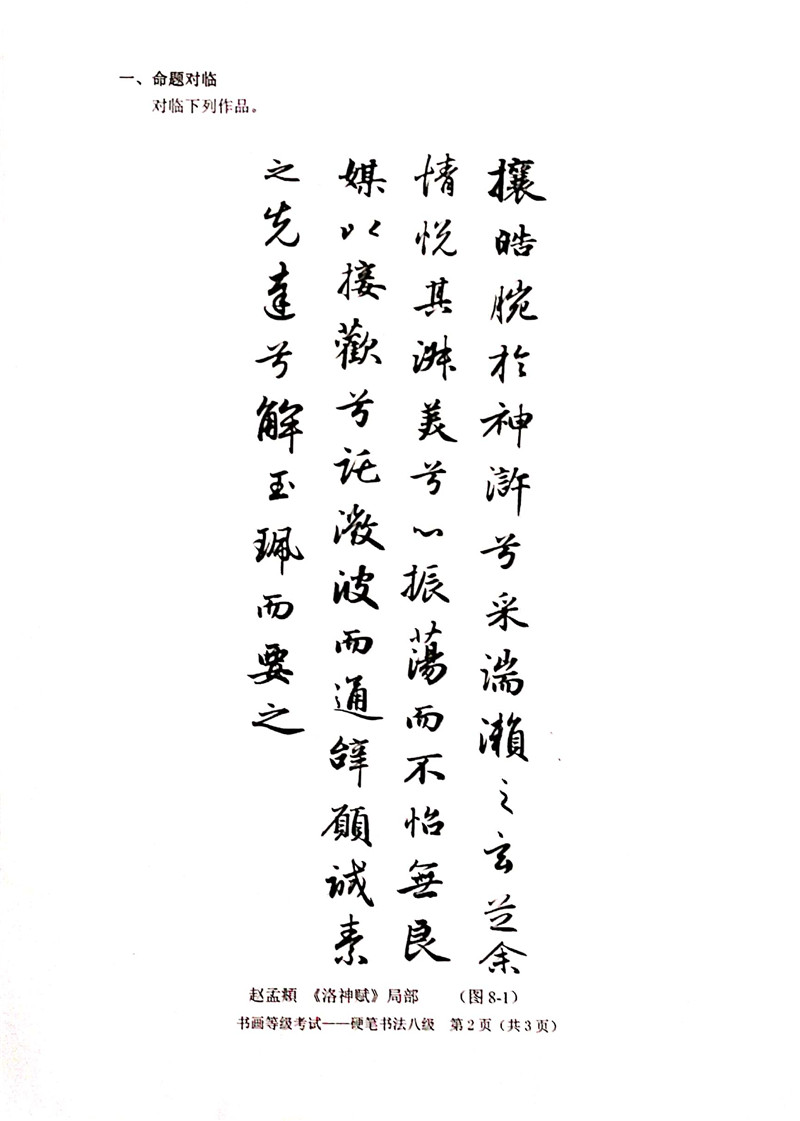 一、命题对临
对临下列作品。
攘皓腕於神滸兮采湍瀨之玄芝余
情悦其淑美兮心振蕩而不怡無良
媒以接歡兮託微波而通辭願誠素
之先達兮解玉珮而要之
赵孟頫 《洛神赋》局部 （图 8-1）
书画等级考试——硬笔书法八级 第 2 页（共 3 页）